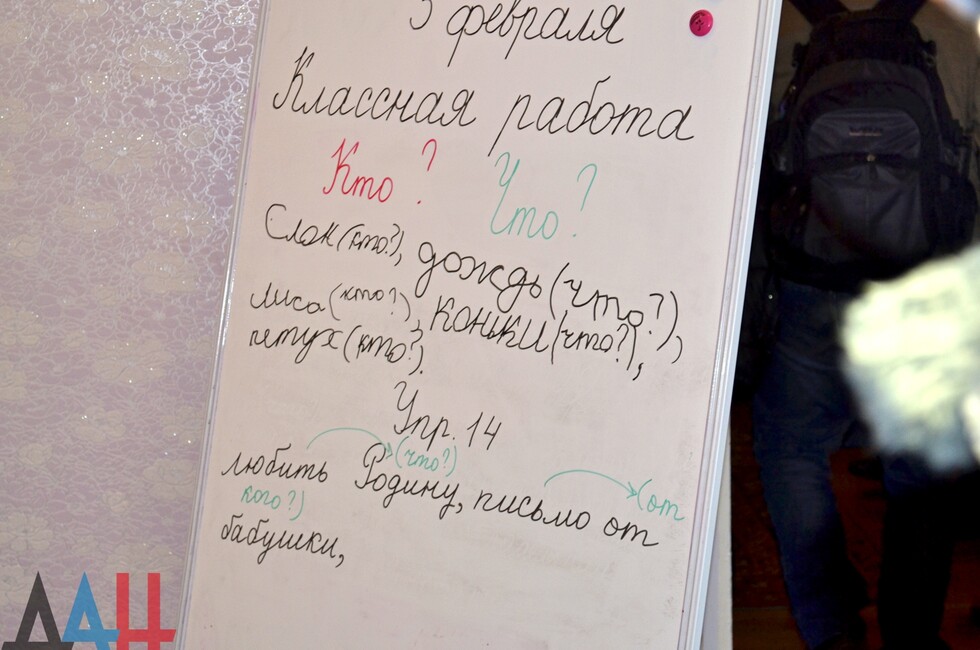 февраля
Классная работа
Кто? Что?
Слон (кто?), дождь (что?),
лиса (кто?), коньки (что?),
петух (кто?).
Упр. 14
(что?)
любить Родину, письмо от (от
кого?)
бабушки,
ДАН